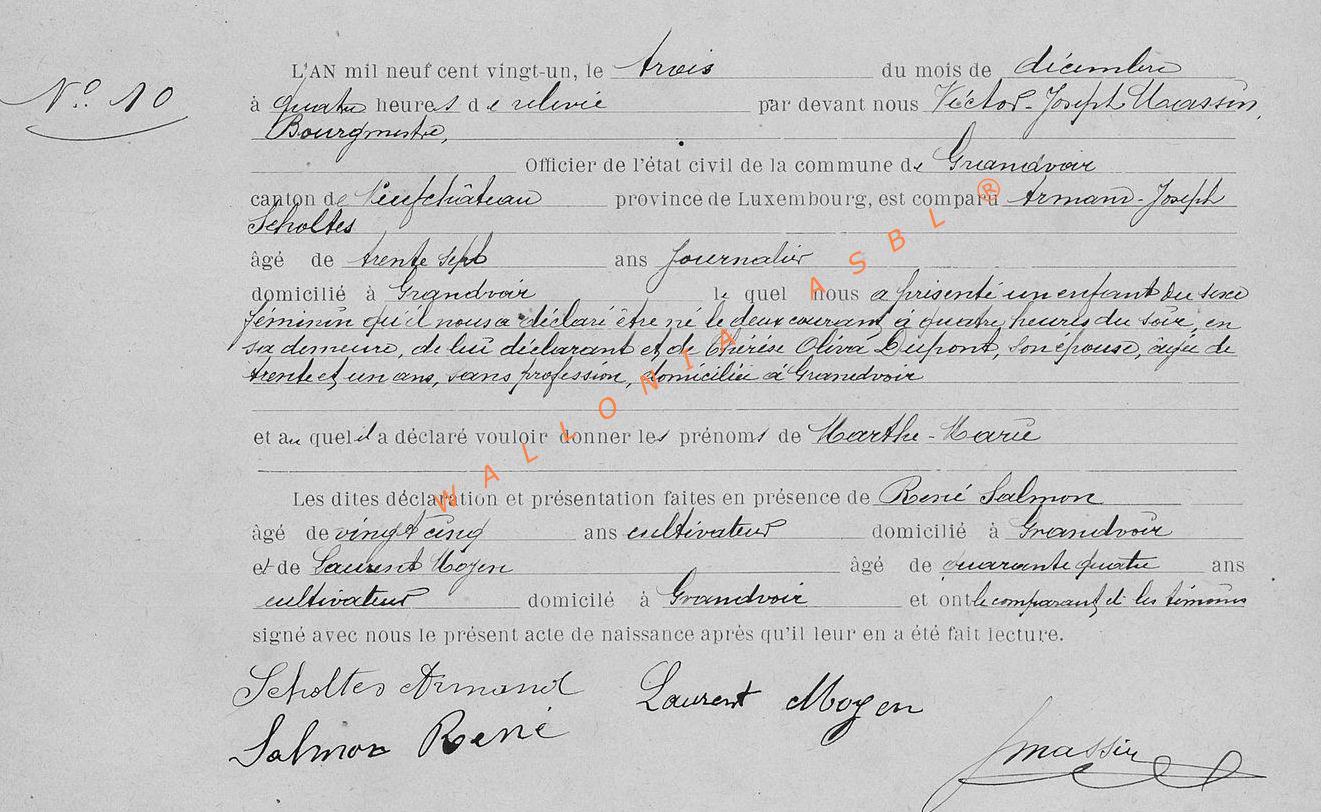 N.º 10
L'AN mil neuf cent vingt-un, le trois du mois de décembre
à quatre heures de relevée par devant nous Victor-Joseph Massin,
Bourgmestre,
Officier de l'état civil de la commune de Grandvoir
canton de Neufchâteau province de Luxembourg, est comparu Armand-Joseph
Scholtes
âgé de trente sept ans journalier
domicilié à Grandvoir le quel nous a présenté un enfant du sexe
féminin qu'il nous a déclaré être né le deux courant, à quatre heures du soir, en
sa demeure, de lui déclarant et de Thérèse Oliva Dupont, son épouse, âgée de
trente et un ans, sans profession, domiciliée à Grandvoir
et au quel il a déclaré vouloir donner les prénoms de Marthe-Marie
Les dites déclaration et présentation faites en présence de René Salmon
âgé de vingt cinq ans cultivateur domicilié à Grandvoir
et de Laurent Moyen âgé de quarante quatre ans
cultivateur domicilé à Grandvoir et ont le comparant et les témoins
signé avec nous le présent acte de naissance après qu'il leur en a été fait lecture.
Scholtes Armand Laurent Moyen
Salmon René
Massin
WALLONIA ASBL ®